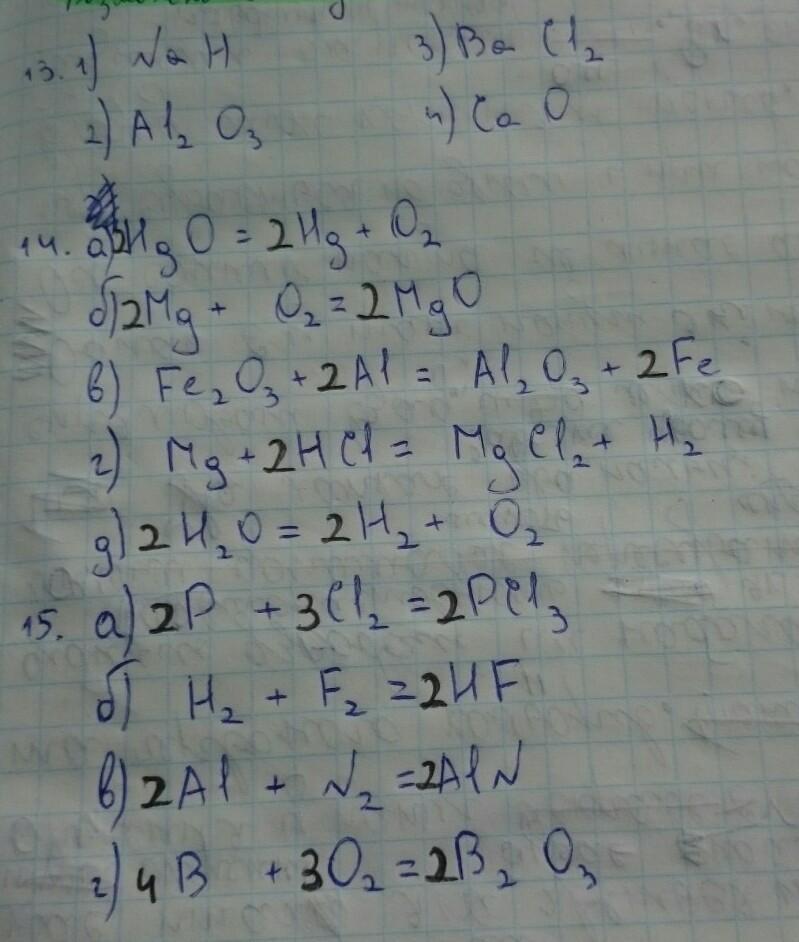 13. 1) NaH 3) BaCl₂
2) Al₂O₃ 4) CaO
14. а) 2HgO = 2Hg + O₂
б) 2Mg + O₂ = 2MgO
в) Fe₂O₃ + 2Al = Al₂O₃ + 2Fe
г) Mg + 2HCl = MgCl₂ + H₂
д) 2H₂O = 2H₂ + O₂
15. а) 2P + 3Cl₂ = 2PCl₃
б) H₂ + F₂ = 2HF
в) 2Al + N₂ = 2AlN
г) 4B + 3O₂ = 2B₂O₃